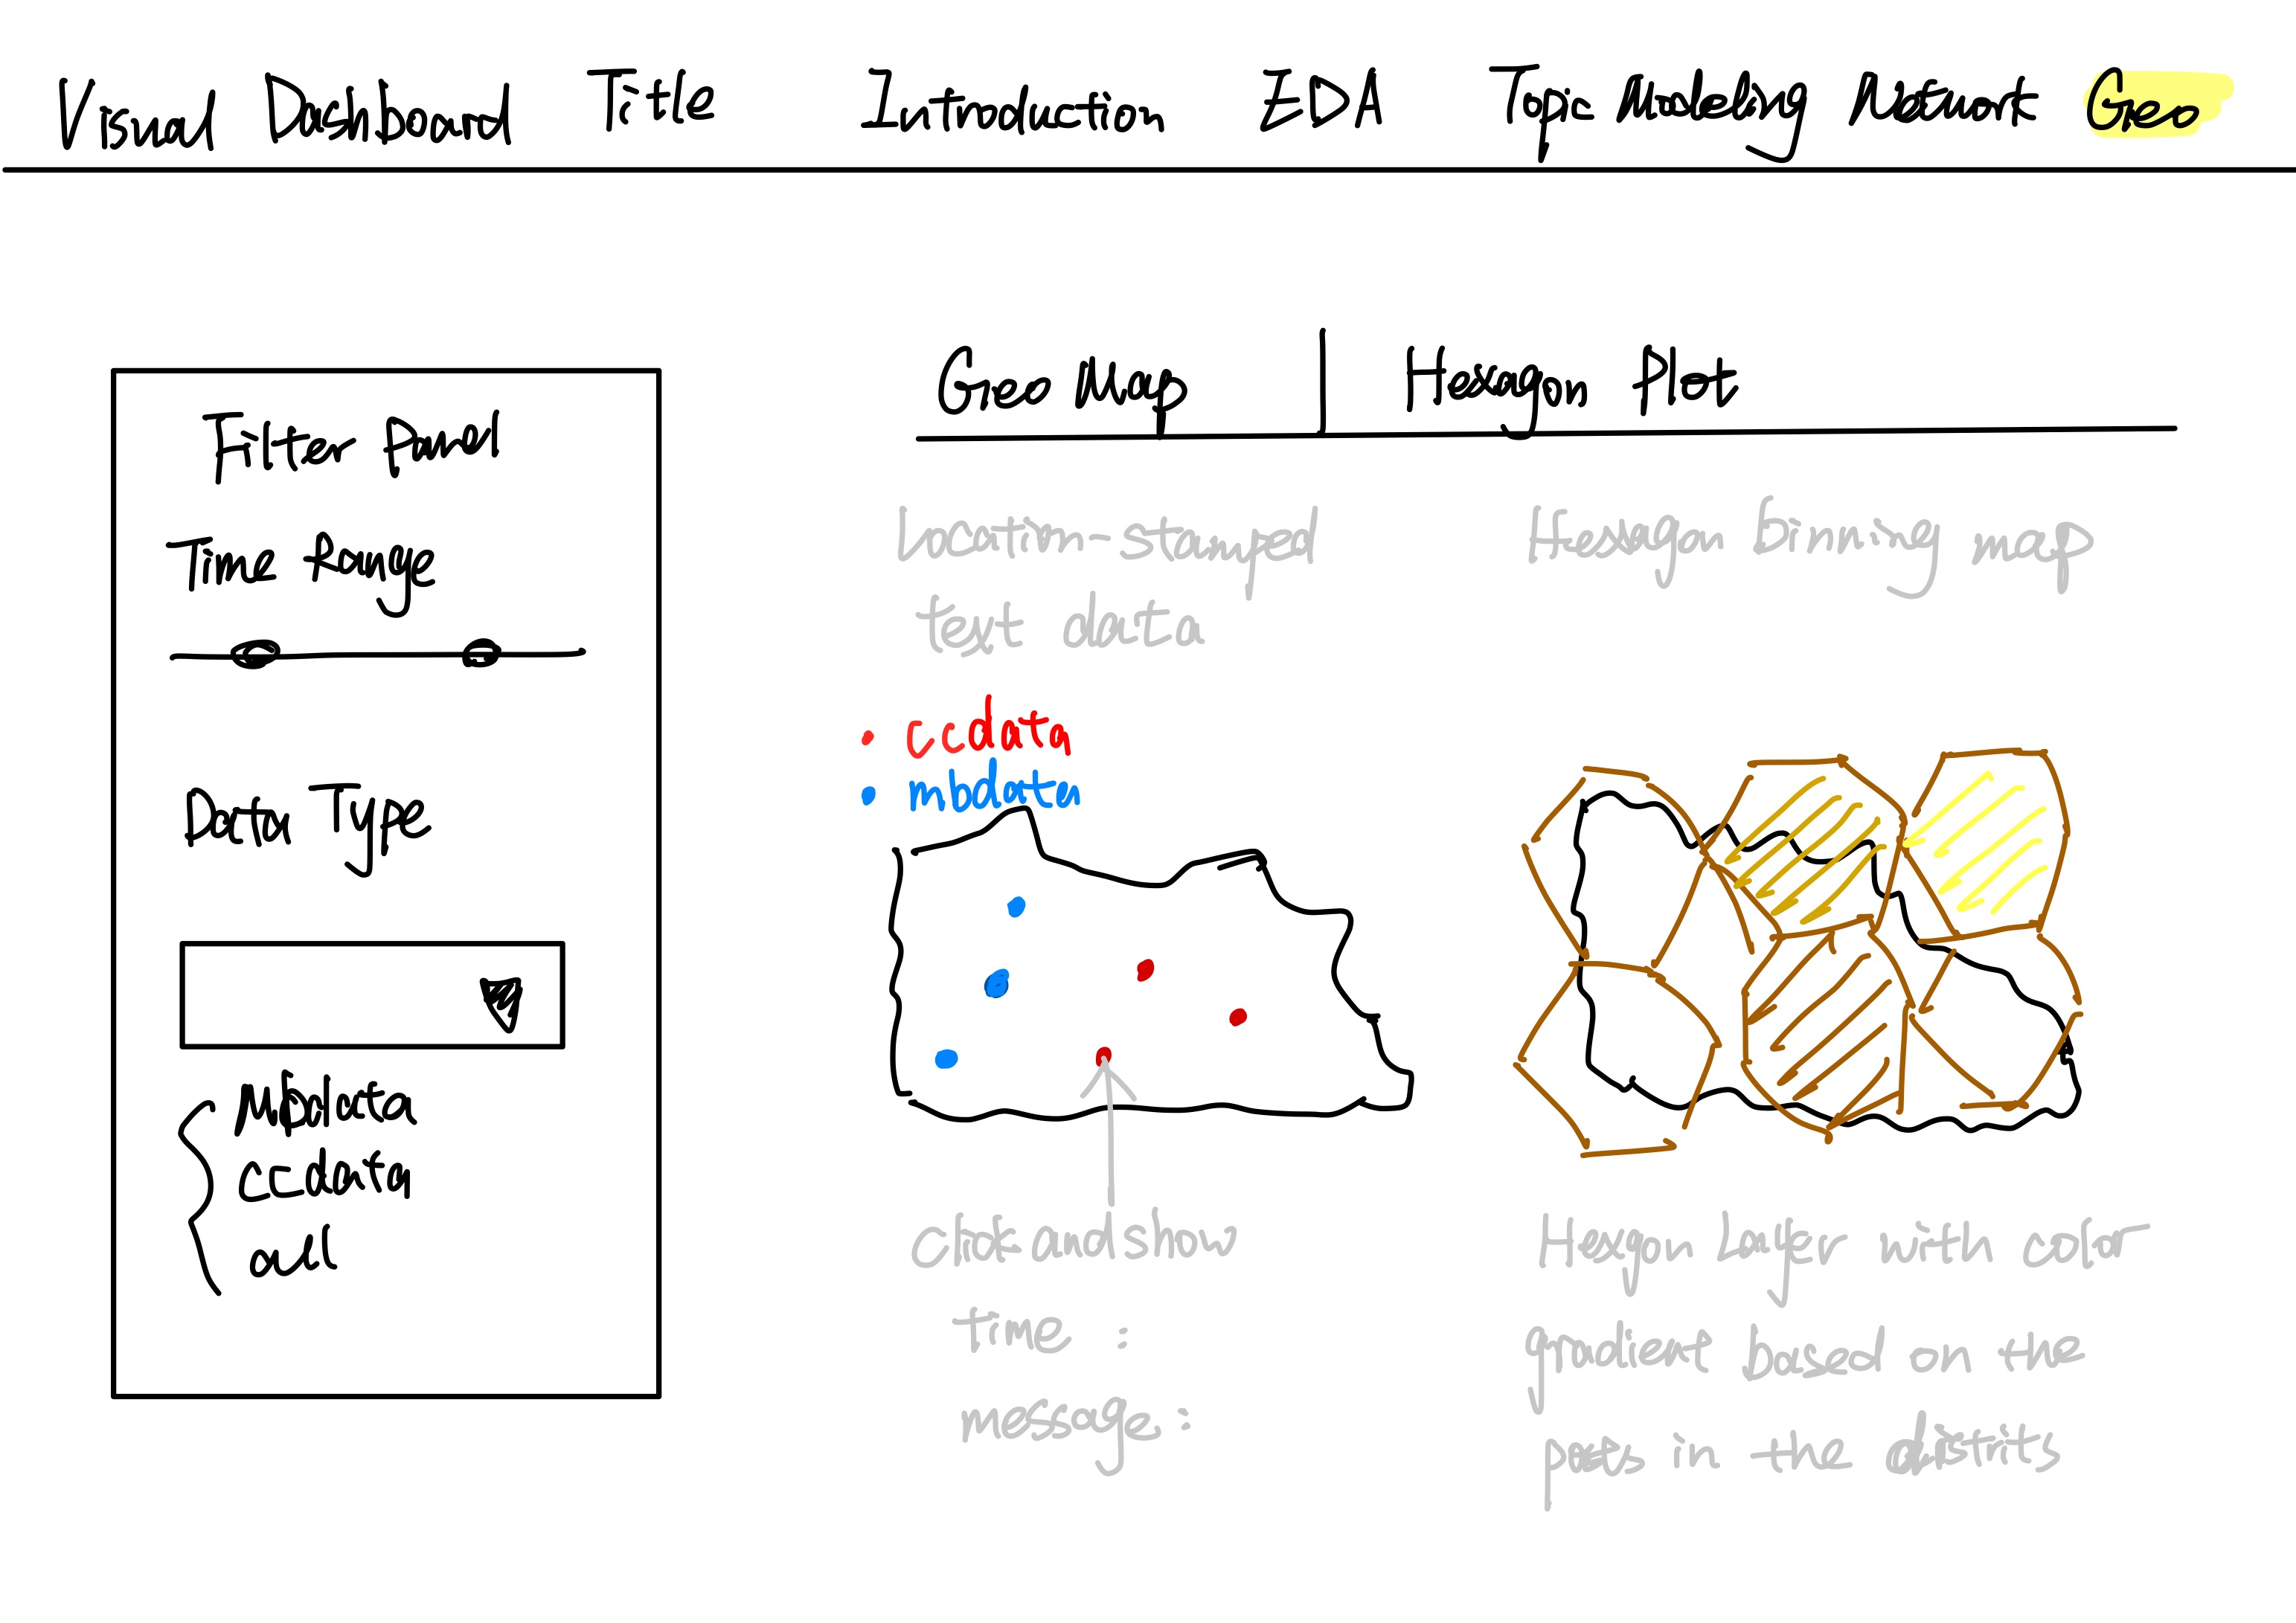 Visual Dashboard Title Introduction EDA Topic Modeling Network Geo
Filter Panel
Time Range
Data Type
Mbdata
ccdata
all
Geo Map | Hexagon Plot
location-stamped
text data
Hexagon binning map
ccdata
mbdata
click and show
time :
message :
Hexgon Layer with color
gradient based on the
posts in the distrits